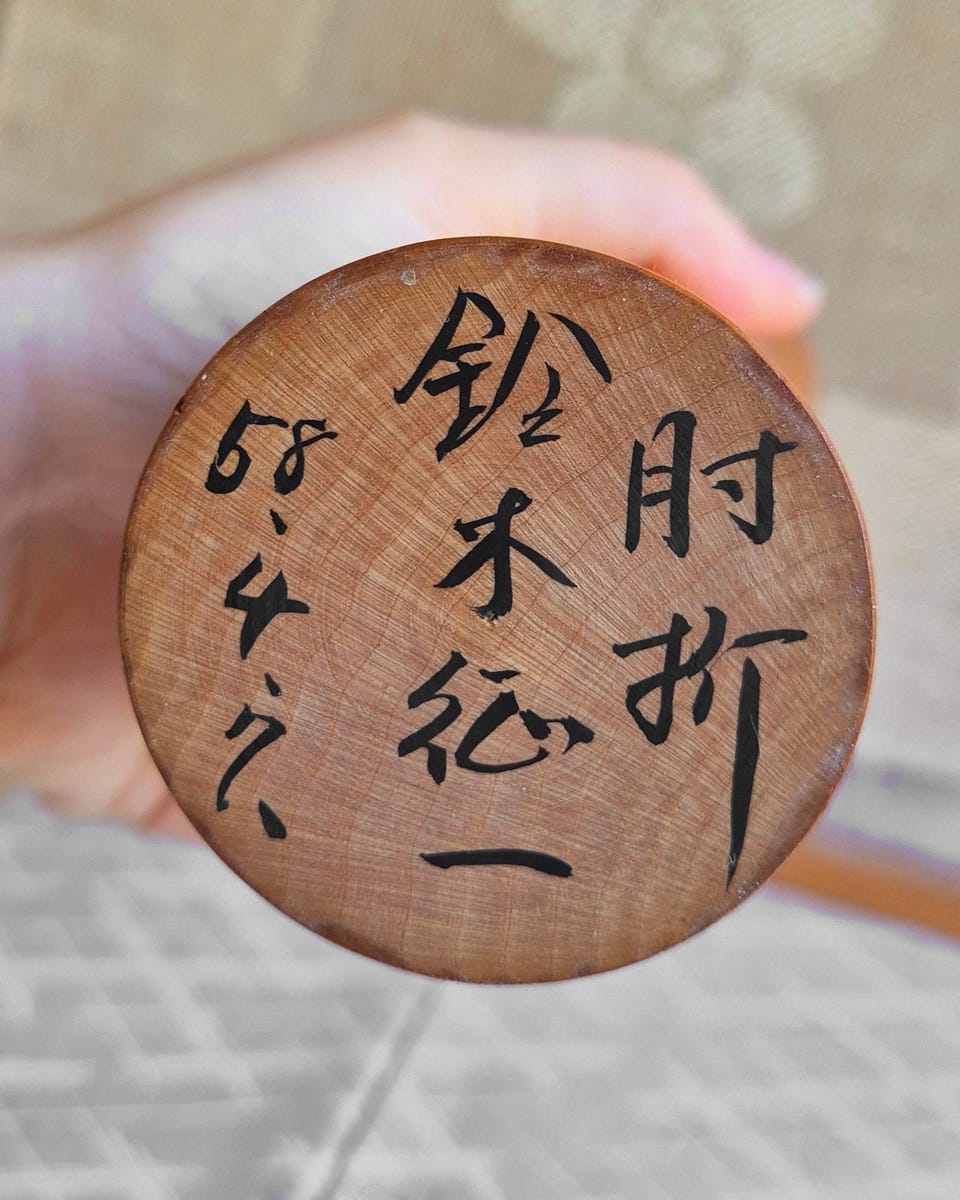 肘折
鈴木征一
58、4、7、